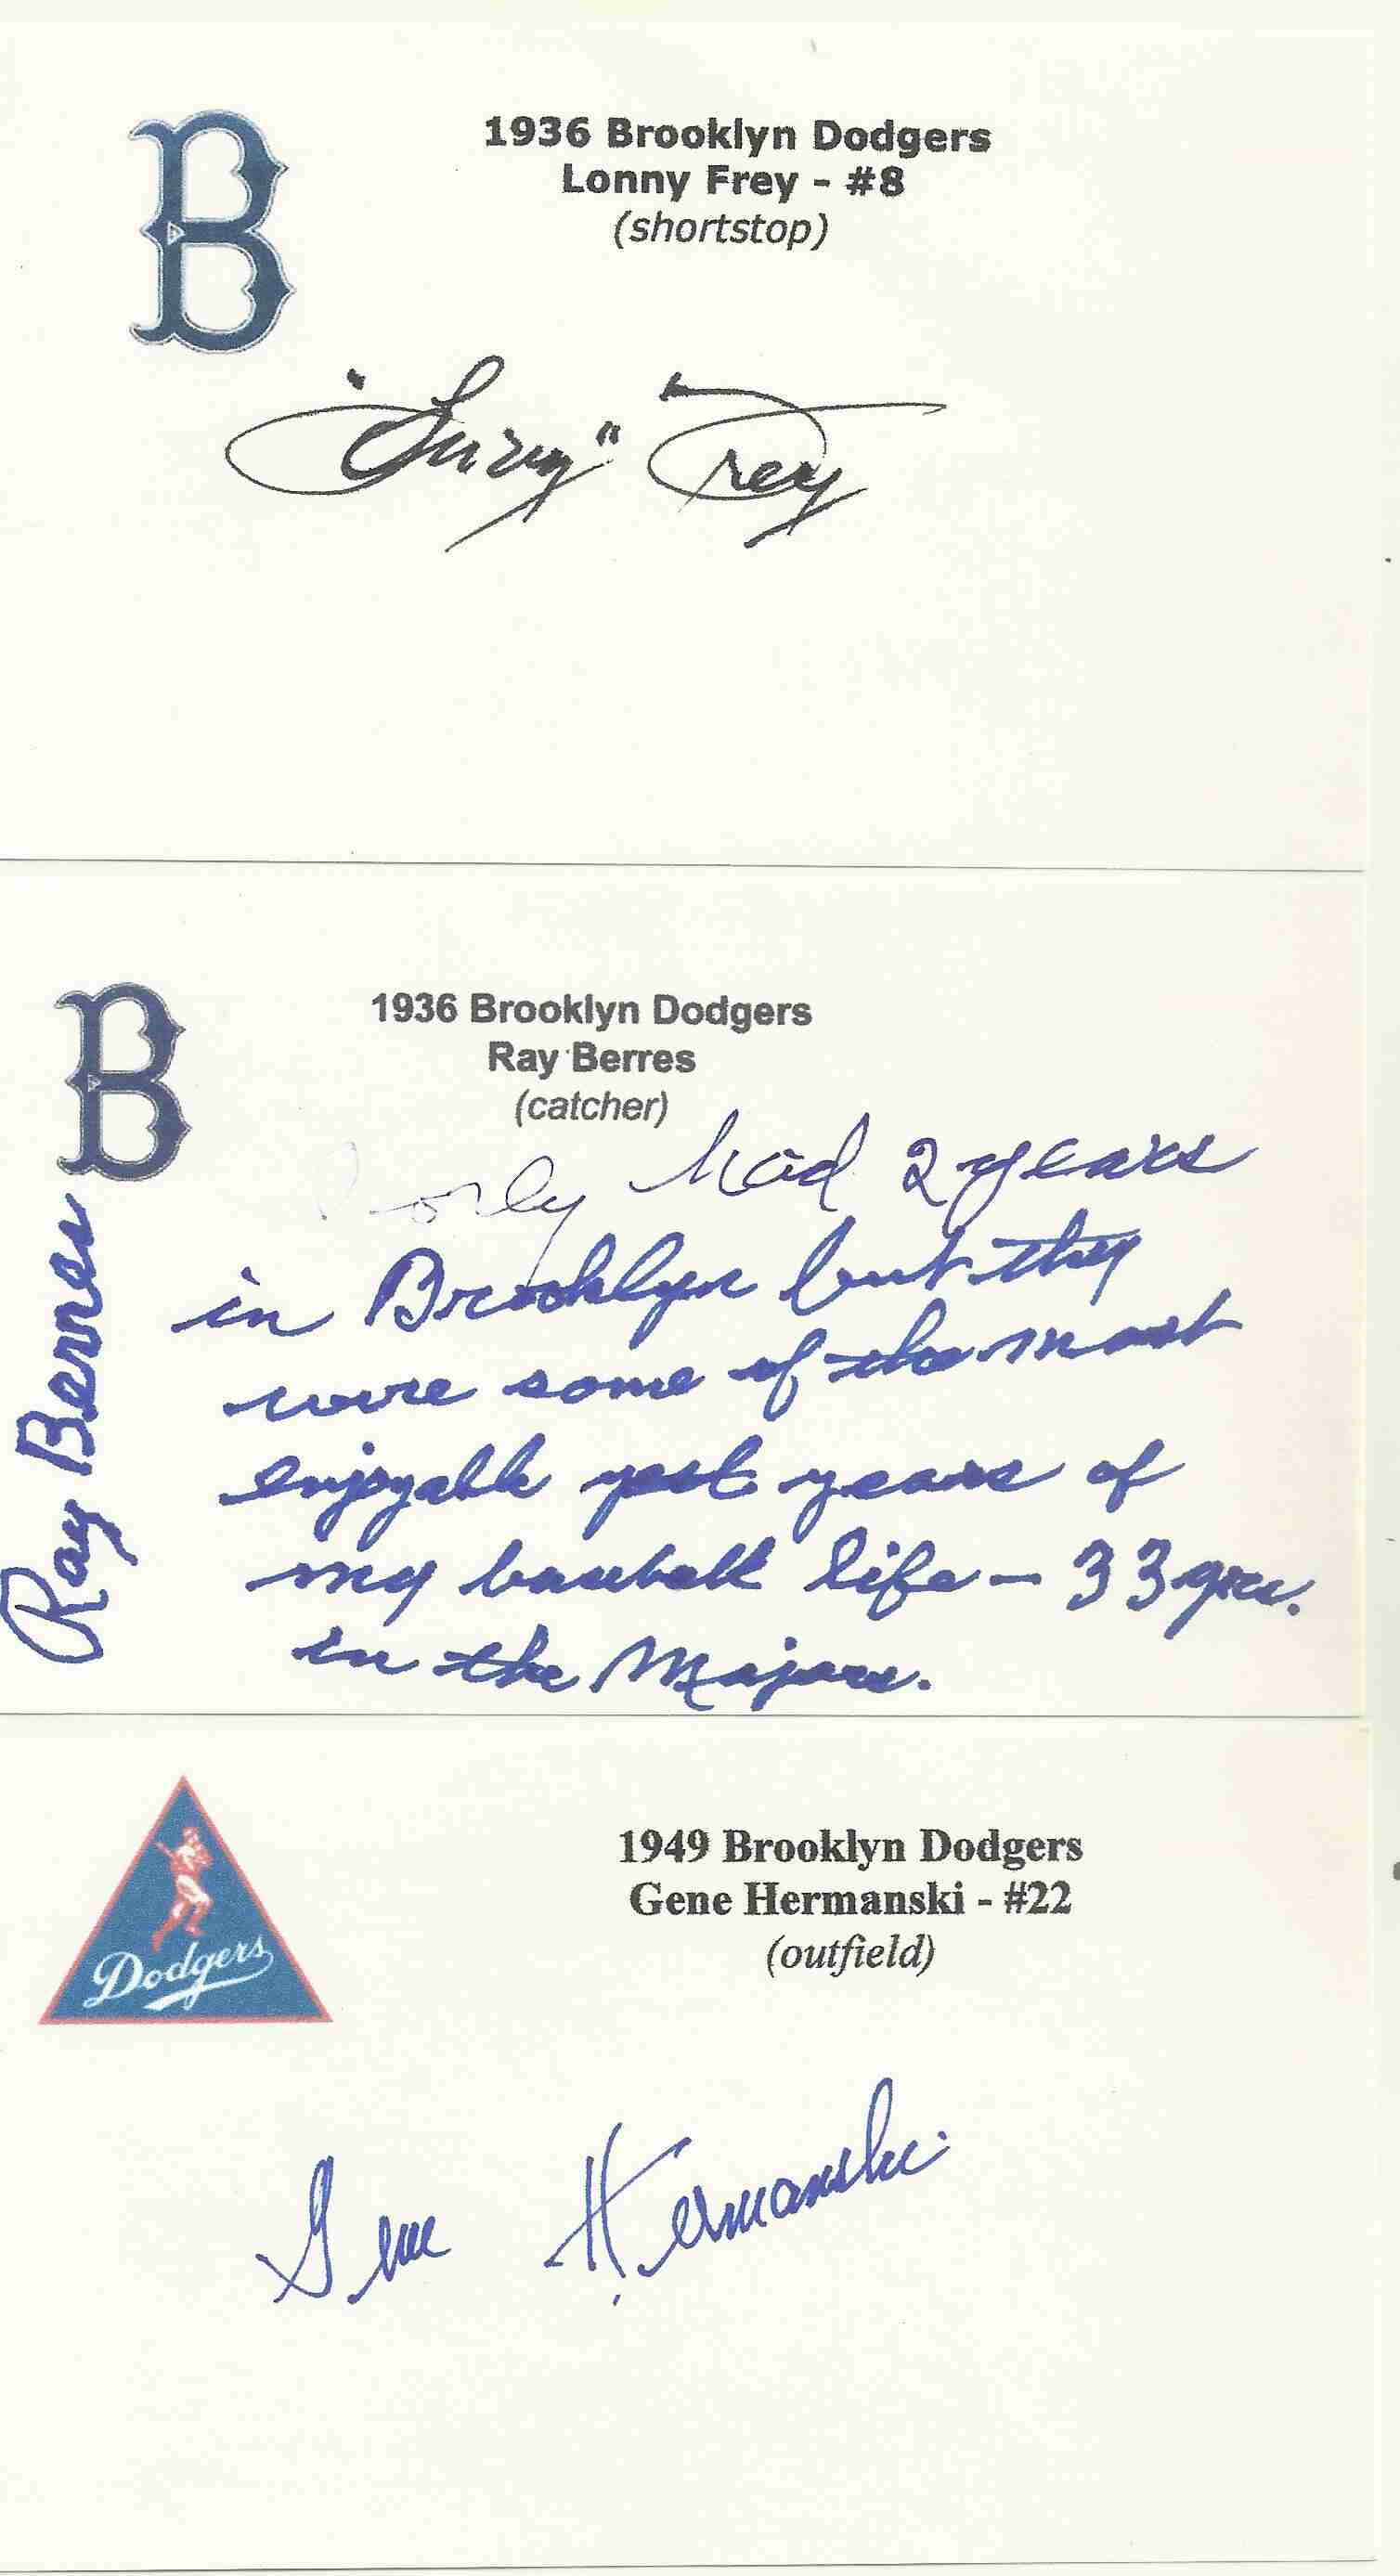 B
1936 Brooklyn Dodgers
Lonny Frey - #8
(shortstop)
"Lonny" Frey
B
1936 Brooklyn Dodgers
Ray Berres
(catcher)
Ray Berres
only had 2 years
in Brooklyn but they
were some of the most
enjoyable years of
my baseball life - 33 yrs.
in the Majors.
Dodgers
1949 Brooklyn Dodgers
Gene Hermanski - #22
(outfield)
Gene Hermanski